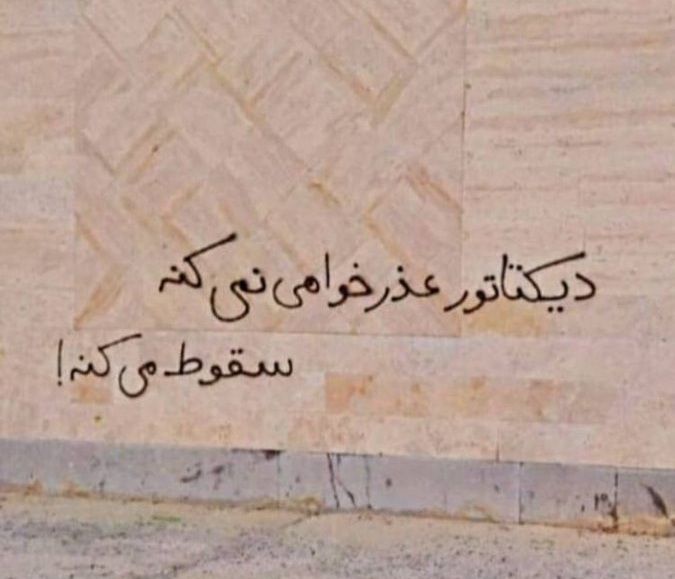 دیکتاتور عذرخواهی نمی کنه
سقوط می کنه!